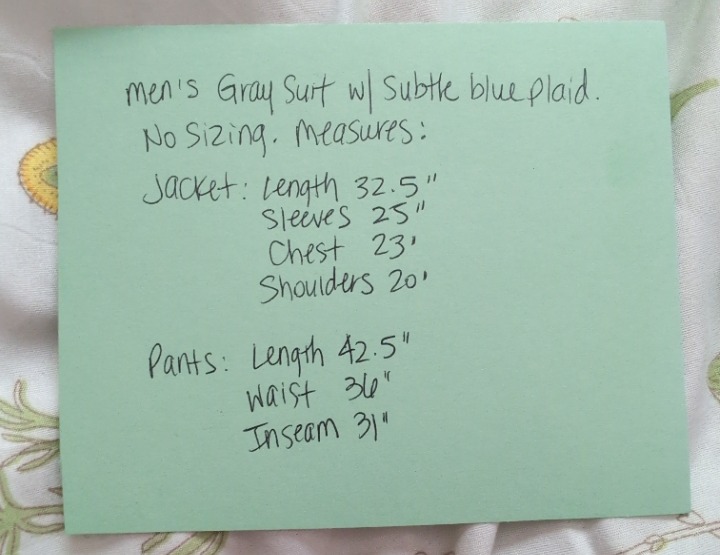 men's Gray Suit w/ subtle blue plaid.
No Sizing. Measures:
Jacket: Length 32.5"
Sleeves 25"
Chest 23'
Shoulders 20'
Pants: Length 42.5"
Waist 36"
Inseam 31"